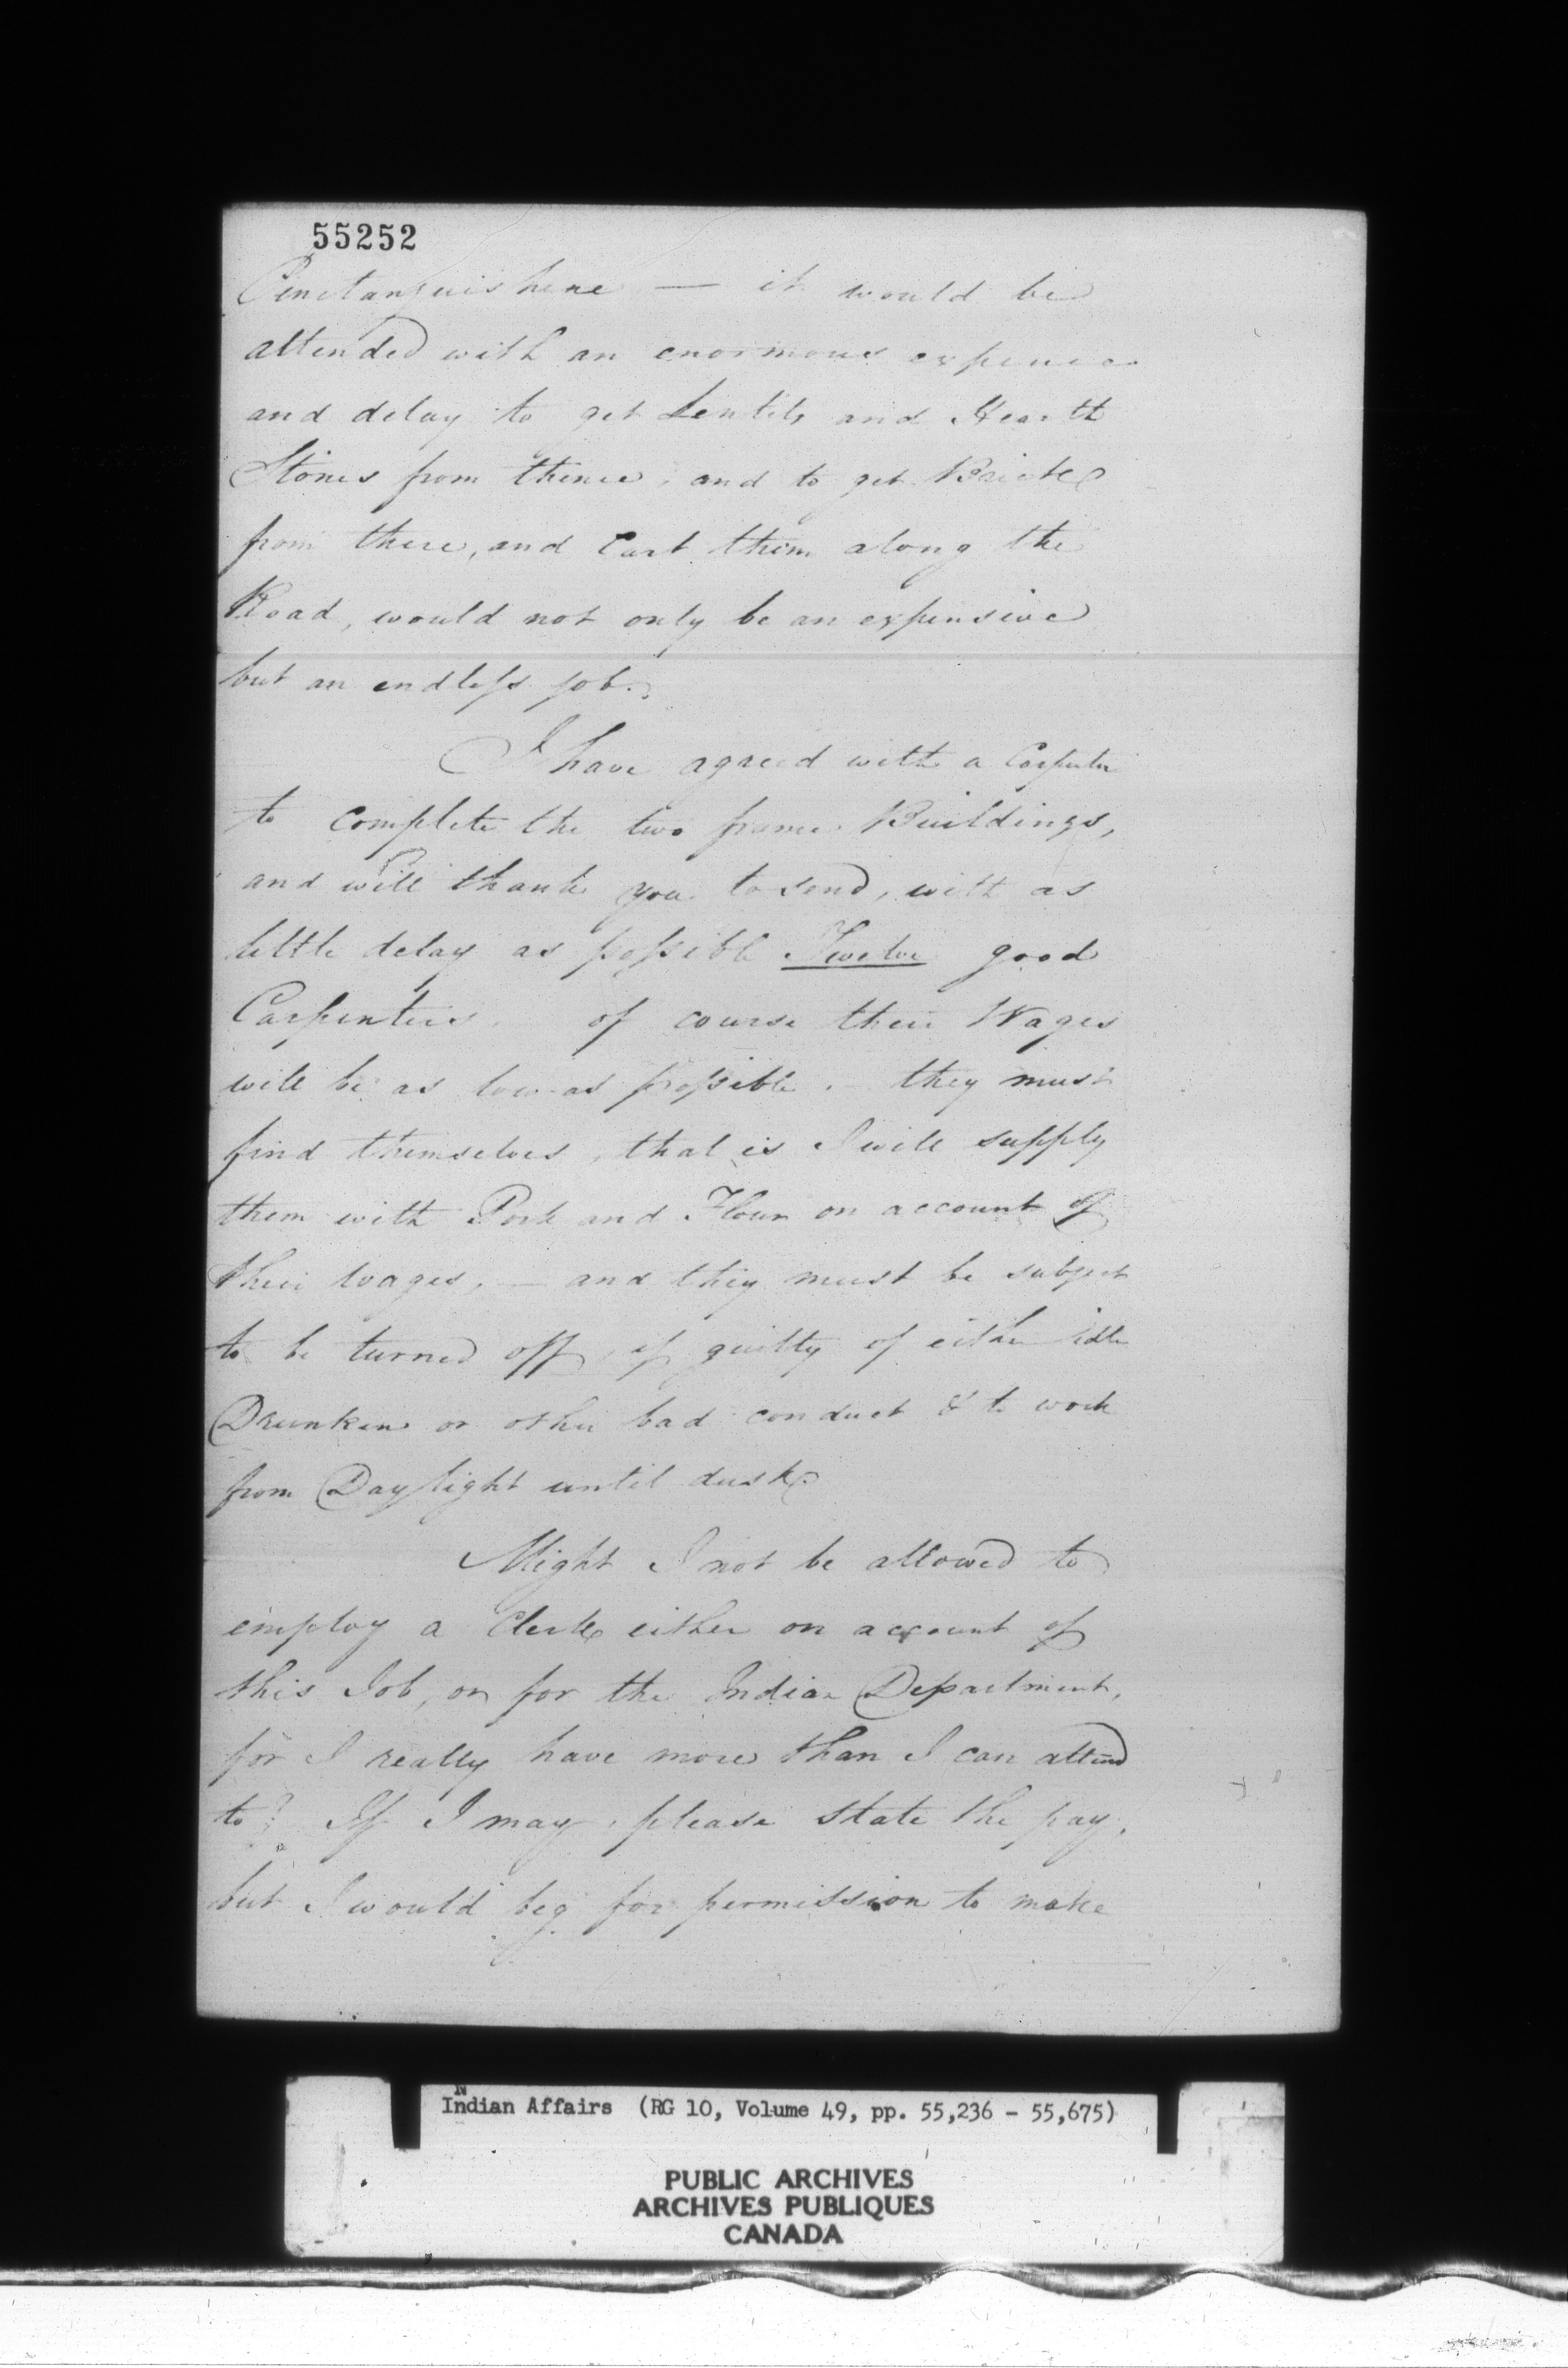 55252
Penetanguishene — it would be
attended with an enormous expence
and delay to get Lentils and Hearth
Stones from thence, and to get Bricks
from there, and Cart them along the
Road, would not only be an expensive
but an endless job.
I have agreed with a Carpenter
to complete the two frame Buildings,
and will thank you to send, with as
little delay as possible Twelve good
Carpenters. of course their Wages
will be as low as possible. they must
find themselves, that is I will supply
them with Pork and Flour on account of
their wages, — and they must be subject
to be turned off, if guilty of either idle
Drunken or other bad conduct & to work
from Daylight until dusk.
Might I not be allowed to
employ a Clerk either on account of
this Job, or for the Indian Department,
for I really have more than I can attend
to? If I may, please state the pay,
but I would beg for permission to make
Indian Affairs (RG 10, Volume 49, pp. 55,236 - 55,675)
PUBLIC ARCHIVES
ARCHIVES PUBLIQUES
CANADA